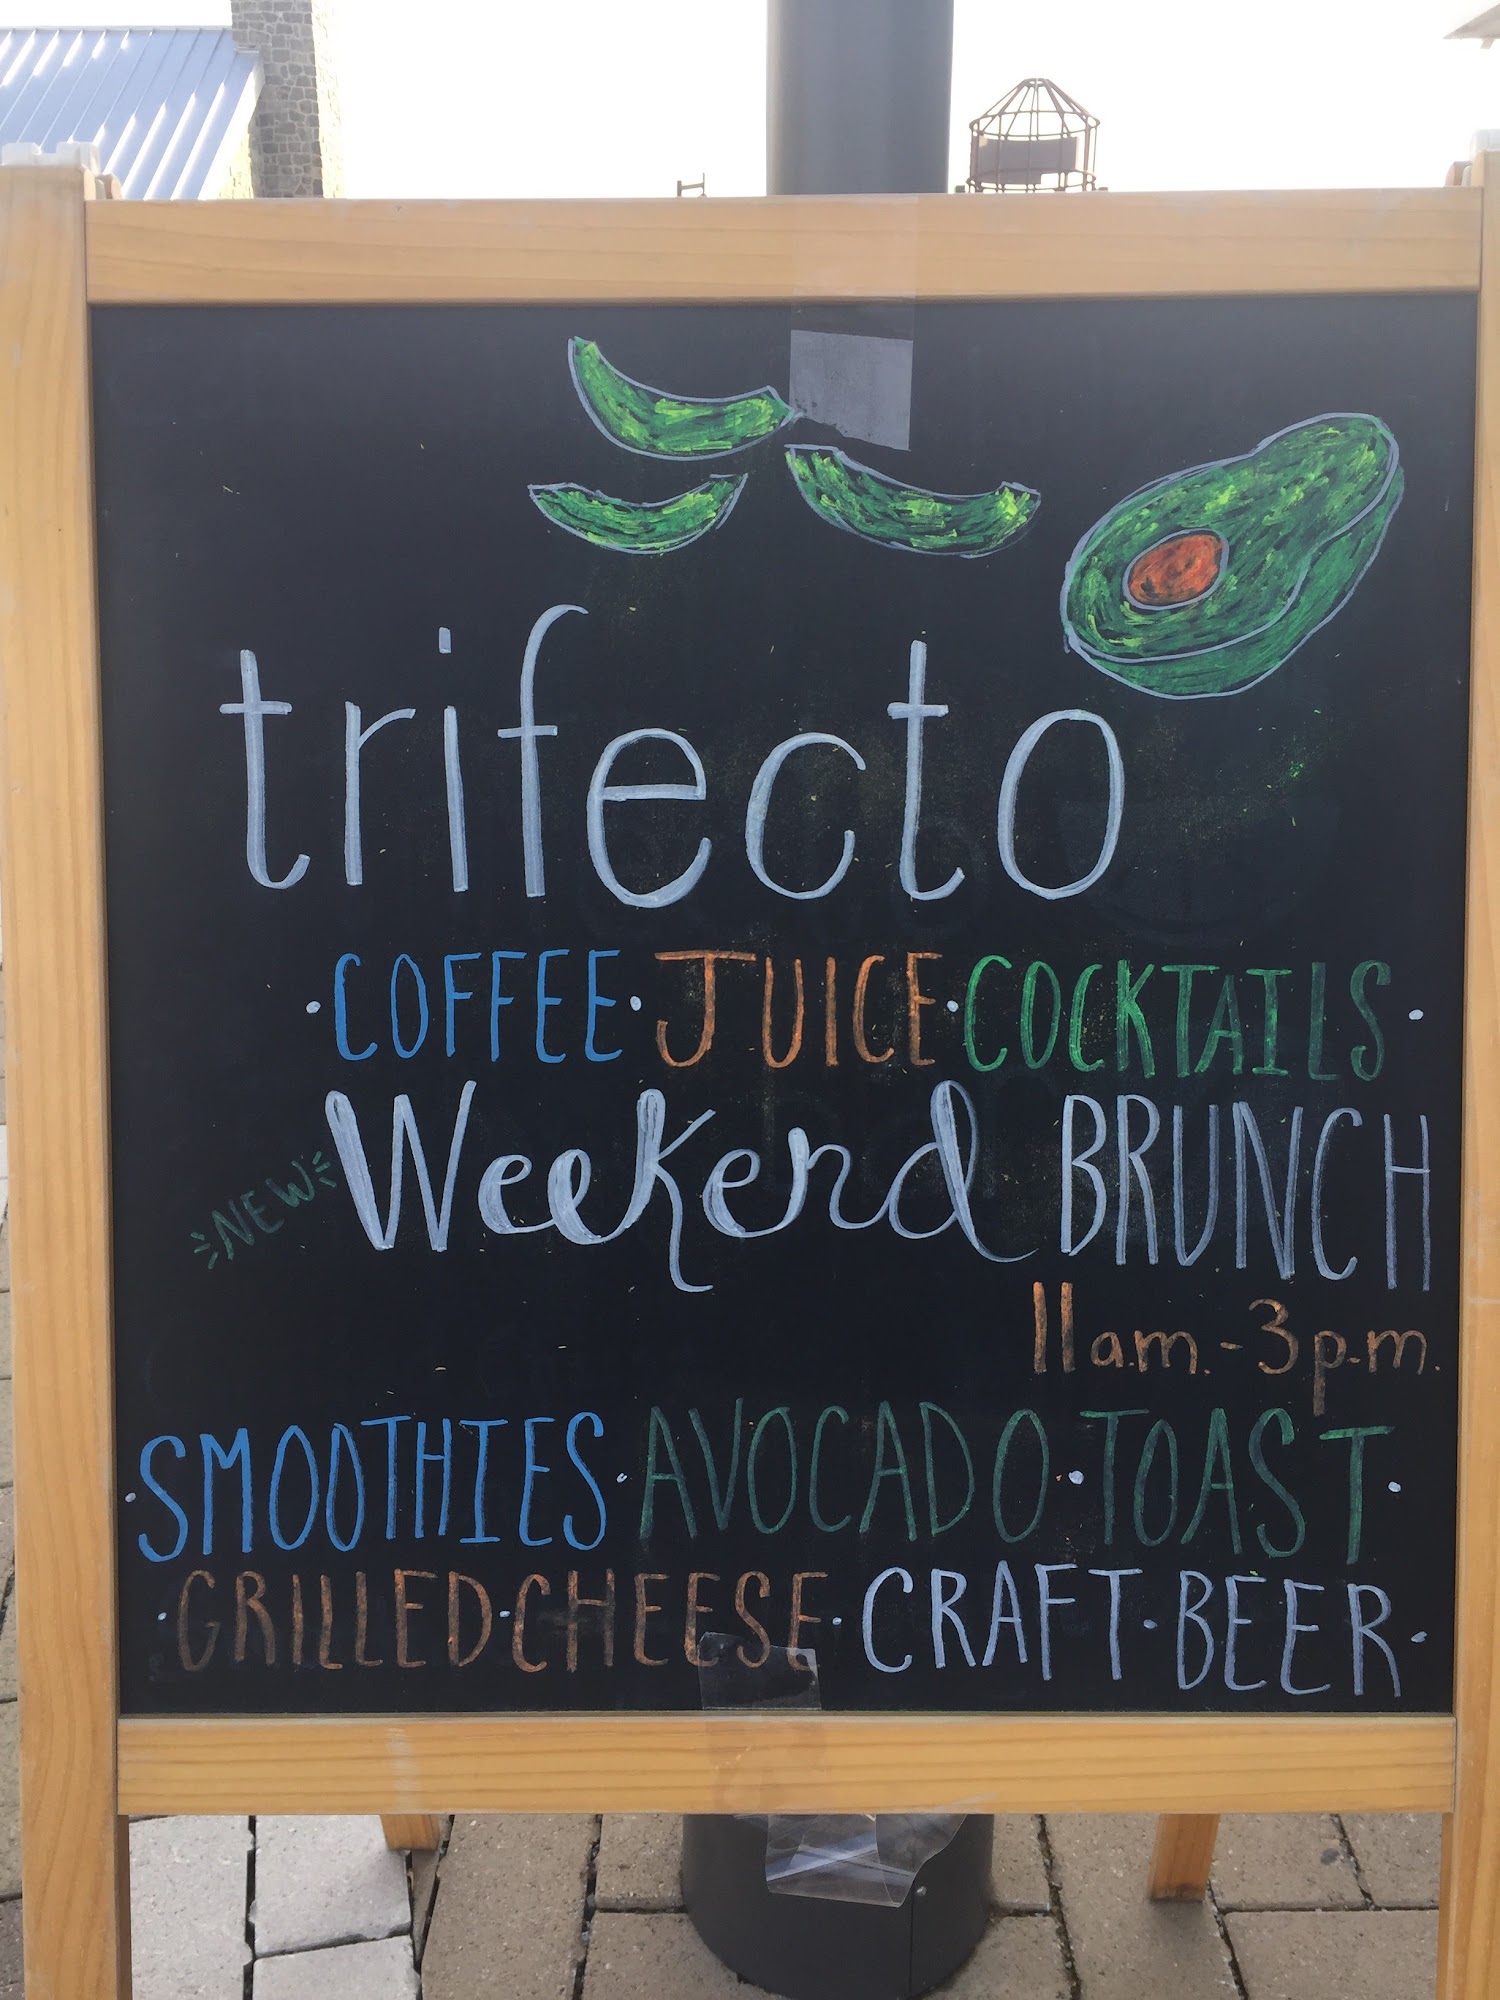 trifecto
·COFFEE·JUICE·COCKTAILS·
NEW Weekend BRUNCH
11a.m.-3p.m.
·SMOOTHIES·AVOCADO·TOAST·
·GRILLED·CHEESE·CRAFT·BEER·